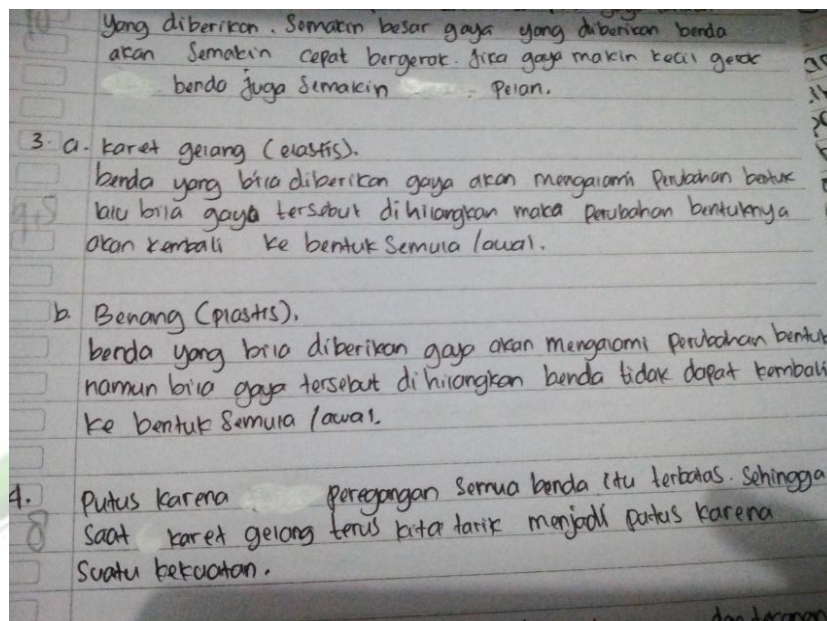 10
yang diberikan. Semakin besar gaya yang diberikan benda
akan Semakin cepat bergerak. Jika gaya makin kecil gerak
benda juga Semakin Pelan.
3. a. karet gelang (elastis).
benda yang bila diberikan gaya akan mengalami Perubahan bentuk
9,5
lalu bila gaya tersebut dihilangkan maka perubahan bentuknya
akan kembali ke bentuk Semula /awal.
b. Benang (plastis).
benda yang bila diberikan gaya akan mengalami perubahan bentuk
namun bila gaya tersebut dihilangkan benda tidak dapat kembali
ke bentuk Semula /awal.
4. Putus karena peregangan semua benda itu terbatas. Sehingga
8
Saat karet gelang terus kita tarik menjadi putus karena
Suatu kekuatan.